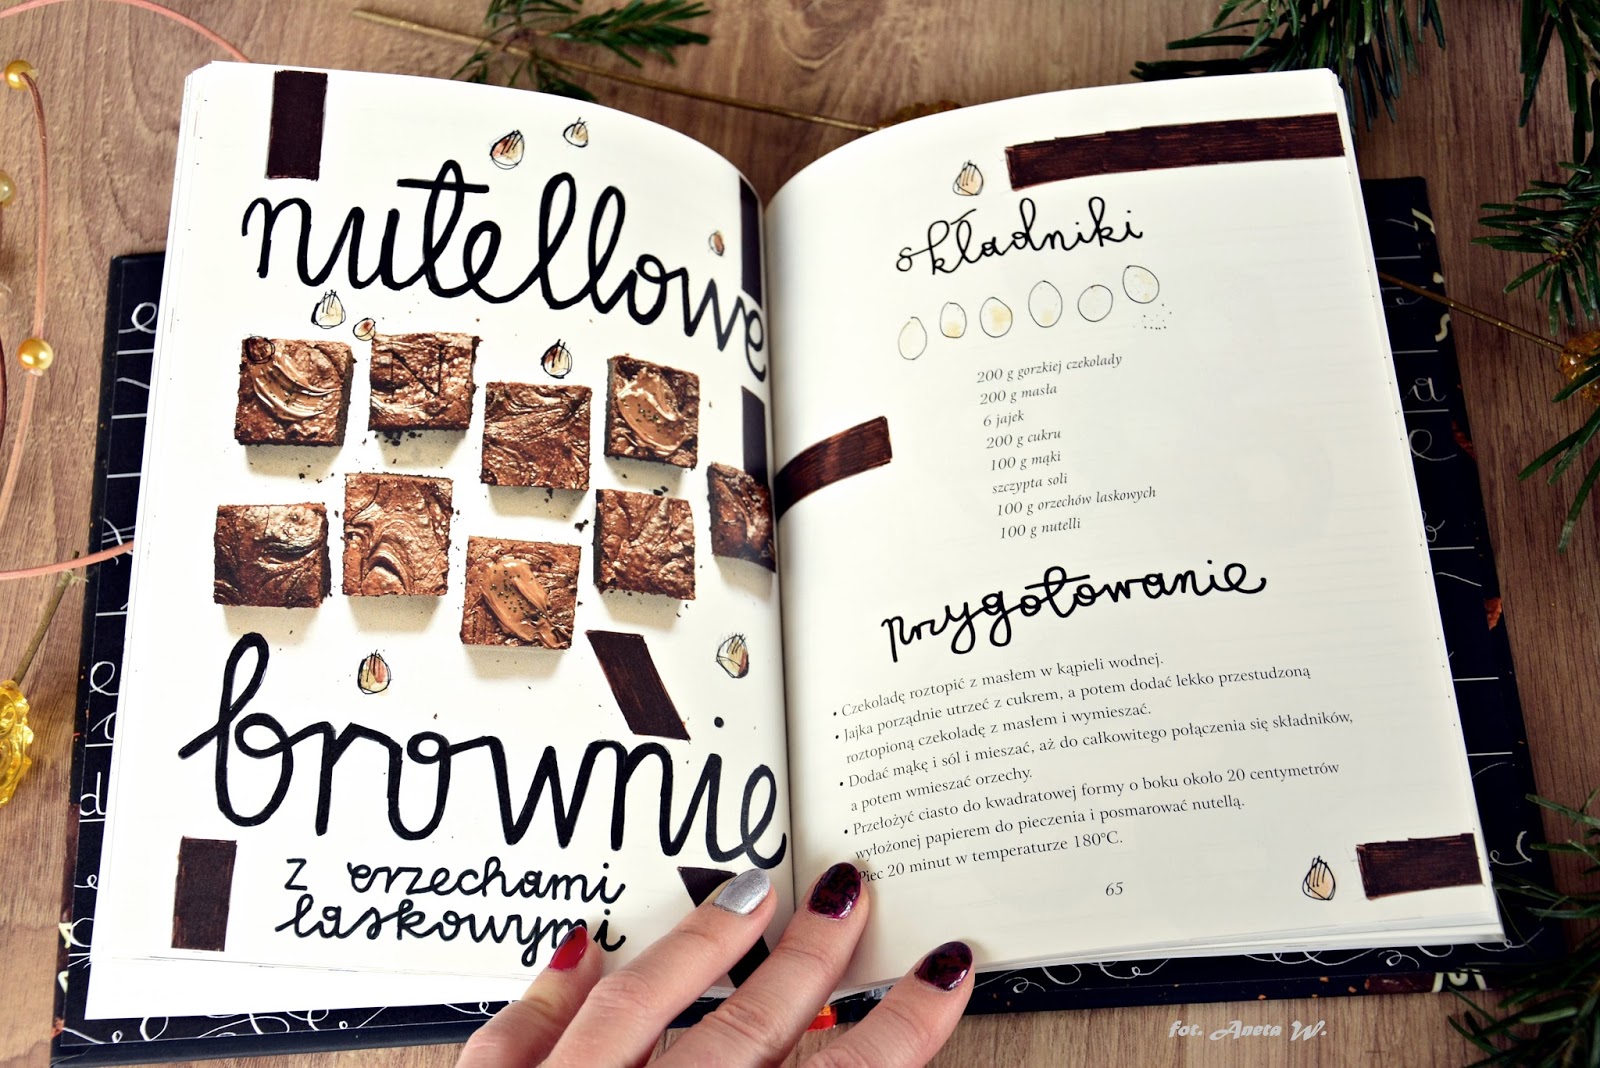 nutellowe
N
brownie
z orzechami
laskowymi
składniki
200 g gorzkiej czekolady
200 g masła
6 jajek
200 g cukru
100 g mąki
szczypta soli
100 g orzechów laskowych
100 g nutelli
przygotowanie
• Czekoladę roztopić z masłem w kąpieli wodnej.
• Jajka porządnie utrzeć z cukrem, a potem dodać lekko przestudzoną
roztopioną czekoladę z masłem i wymieszać.
• Dodać mąkę i sól i mieszać, aż do całkowitego połączenia się składników,
a potem wmieszać orzechy.
• Przełożyć ciasto do kwadratowej formy o boku około 20 centymetrów
wyłożonej papierem do pieczenia i posmarować nutellą.
Piec 20 minut w temperaturze 180°C.
65
fot. Aneta W.